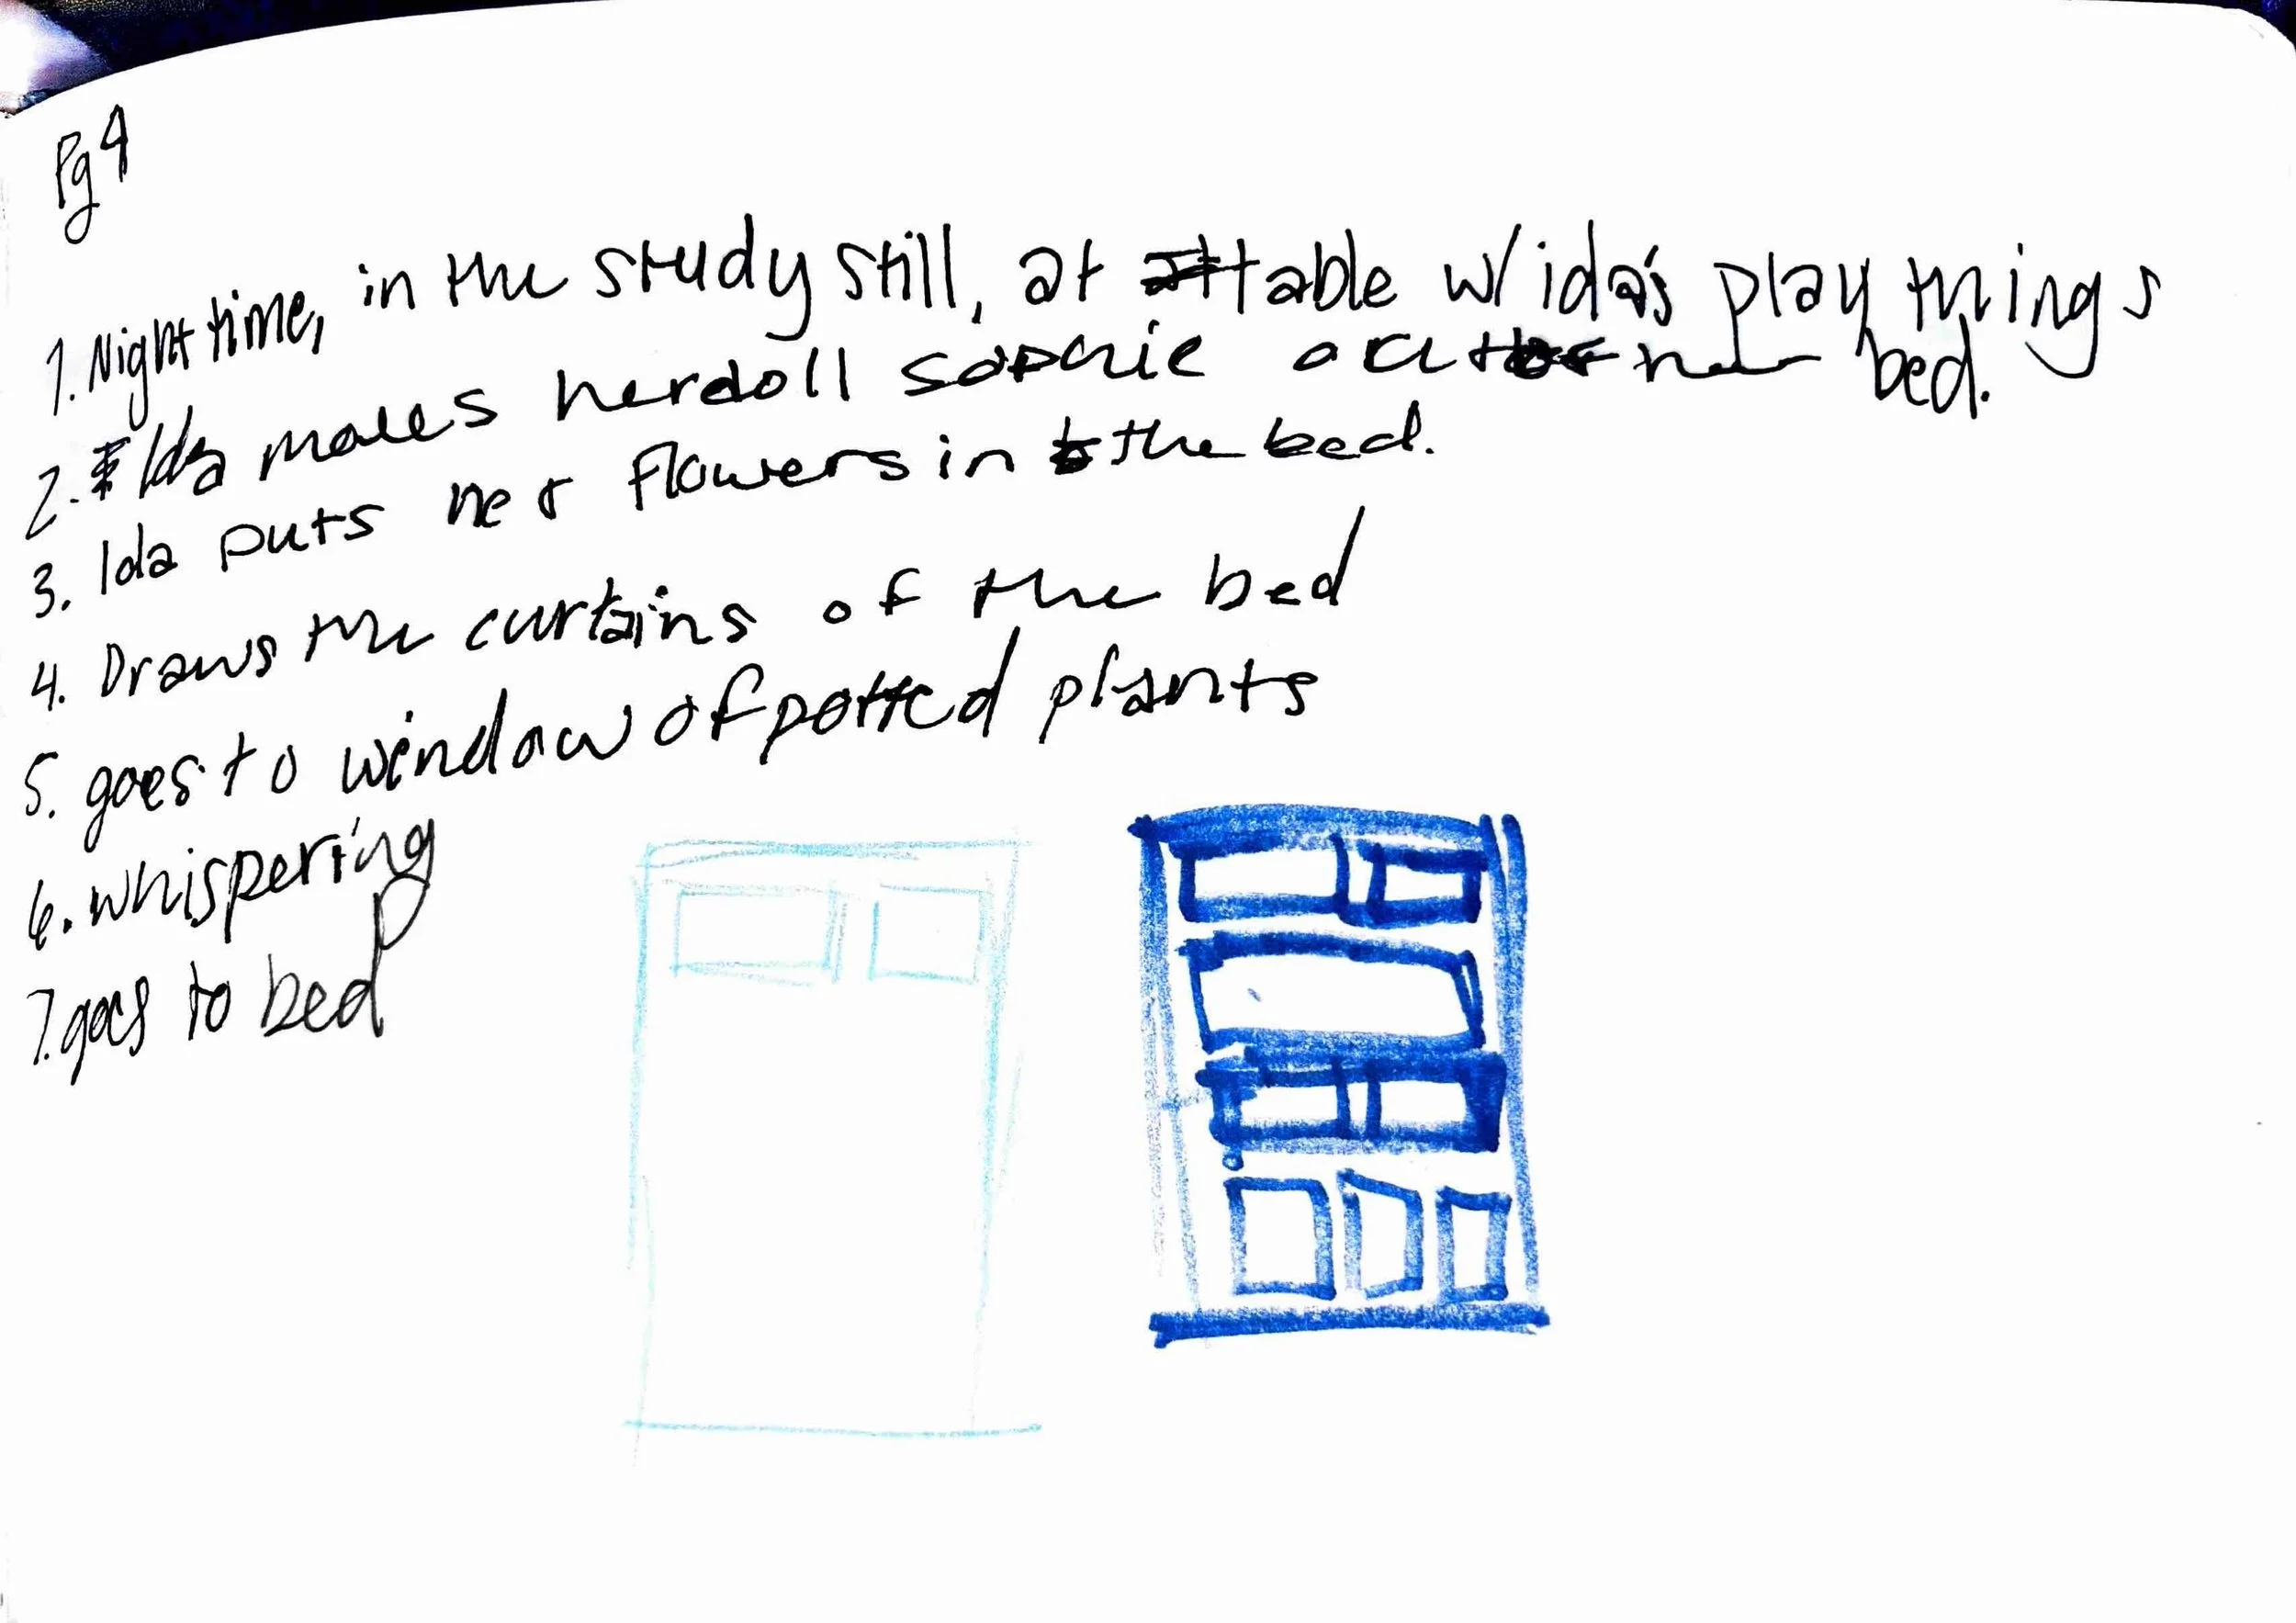 Pg 4
1. Night time, in the study still, at table w/ ida's play things
2. Ida moves her doll Sophie out her bed.
3. Ida puts her flowers in the bed.
4. Draws the curtains of the bed
5. goes to window of potted plants
6. whispering
7. goes to bed